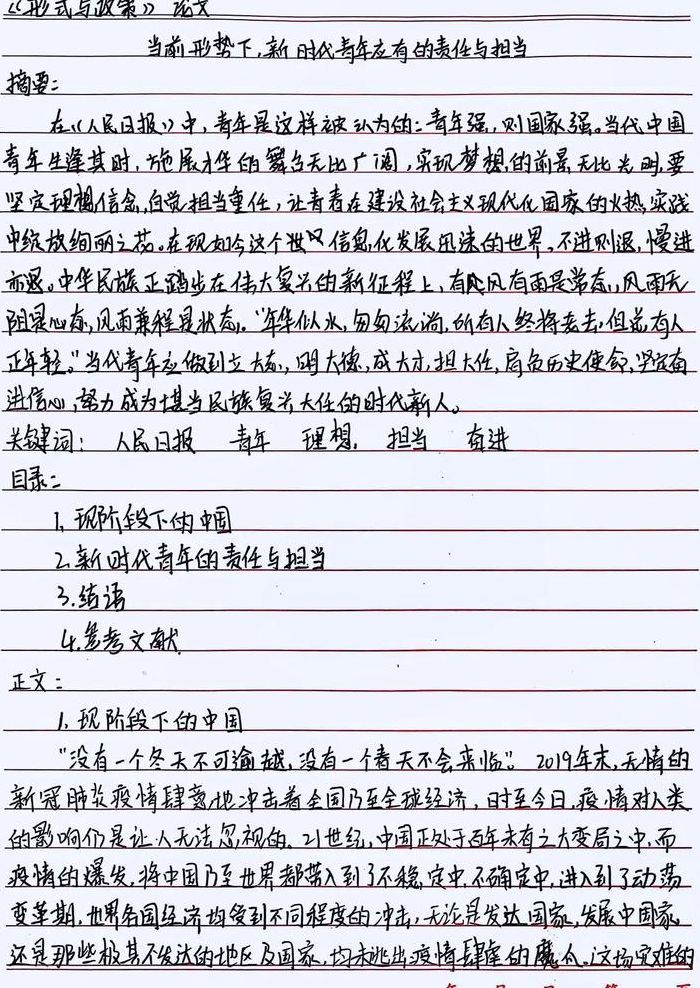 《形式与政策》论文
当前形势下,新时代青年应有的责任与担当
摘要:
在《人民日报》中,青年是这样被认为的:青年强,则国家强。当代中国
青年生逢其时,施展才华的舞台无比广阔,实现梦想的前景无比光明,要
坚定理想信念,自觉担当重任,让青春在建设社会主义现代化国家的火热实践
中绽放绚丽之花。在现如今这个世界信息化发展迅速的世界,不进则退,慢进
亦退。中华民族正踏步在伟大复兴的新征程上,有风有雨是常态,风雨无
阻是心态,风雨兼程是状态。“年华似水,匆匆流淌,所有人终将老去,但总有人
正年轻。”当代青年应做到立大志,明大德,成大才,担大任,肩负历史使命,坚定前
进信心,努力成为堪当民族复兴大任的时代新人。
关键词: 人民日报 青年 理想 担当 奋进
目录:
1.现阶段下的中国
2.新时代青年的责任与担当
3.结语
4.参考文献
正文:
1.现阶段下的中国
“没有一个冬天不可逾越,没有一个春天不会来临”。2019年末,无情的
新冠肺炎疫情肆意地冲击着全国乃至全球经济,时至今日,疫情对人类
的影响仍是让人无法忽视的。21世纪,中国正处于百年未有之大变局之中,而
疫情的爆发,将中国乃至世界都带入到了不稳定中,不确定中,进入到了动荡
变革期,世界各国经济均受到不同程度的冲击,无论是发达国家,发展中国家
还是那些极其不发达的地区及国家,均未逃出疫情肆虐的魔爪。这场灾难的